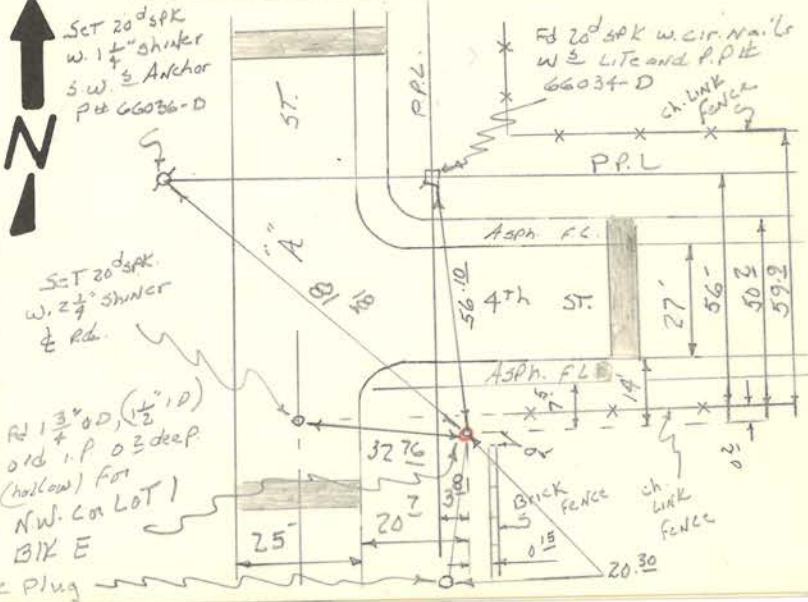 N
Set 20ᵈ spk
w. 1 1/4" shiner
S.W. 5 Anchor
P# 66036-D
Fd 20ᵈ spk w. cir. Nails
w 5 Lite and P.P#
66034-D
ch. LINK
FENCE
ST.
P.P.L.
P.P.L
"A"
Asph. F.L.
4th ST.
Asph. FL
56.10
81 18
27'
56'
50 2
59.9
7 5
14'
0 2
Set 20ᵈ spk.
w. 2 1/4" shiner
Fd 1 3/4" OD, (1 1/2" ID)
old I.P 0 2 deep.
(hollow) For
N.W. Cor LOT 1
BIK E
Plug
32 76
20 7
25'
3 00
Brick
FENCE
5
0 15
ch.
LINK
FENCE
20.30